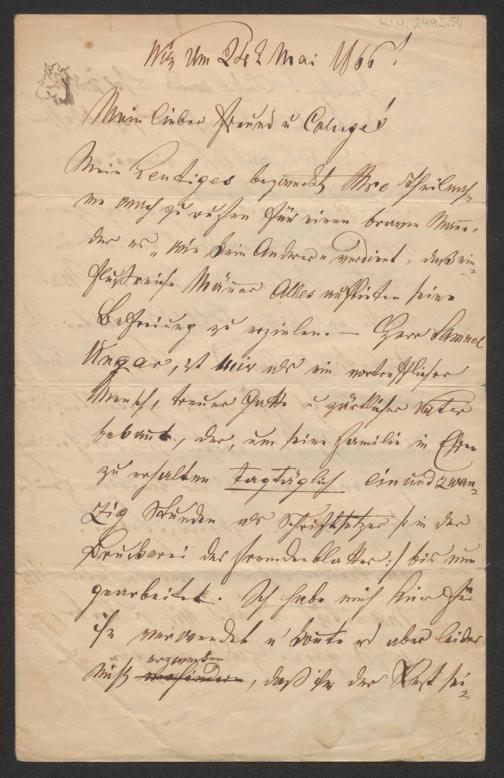 H.I.N. 249554
Wien am 24t Mai 1866!
Mein lieber Freund u College!
Mein Heutiges bezweckt Ihre Theilnah-
me wach zu rufen für einen braven Mann,
der es, wie kein Anderer verdient, daß ein-
flußreiche Männer Alles aufbieten seine
Befreiung zu erzielen. — Herr Samuel
Ungar, ist mir als ein vortrefflicher
Mensch, treuer Gatte u zärtlicher Vater
bekannt, der, um seine Familie in Ehren
zu erhalten tagtäglich einundzwan-
zig Stunden als Schriftsetzer /: in der
Druckerei des Fremdenblattes :/ bis nun
gearbeitet. Ich habe mich hier für
ihn verwendet u konnte es aber leider
nicht erzwecken, daß ihm der Rest sei-